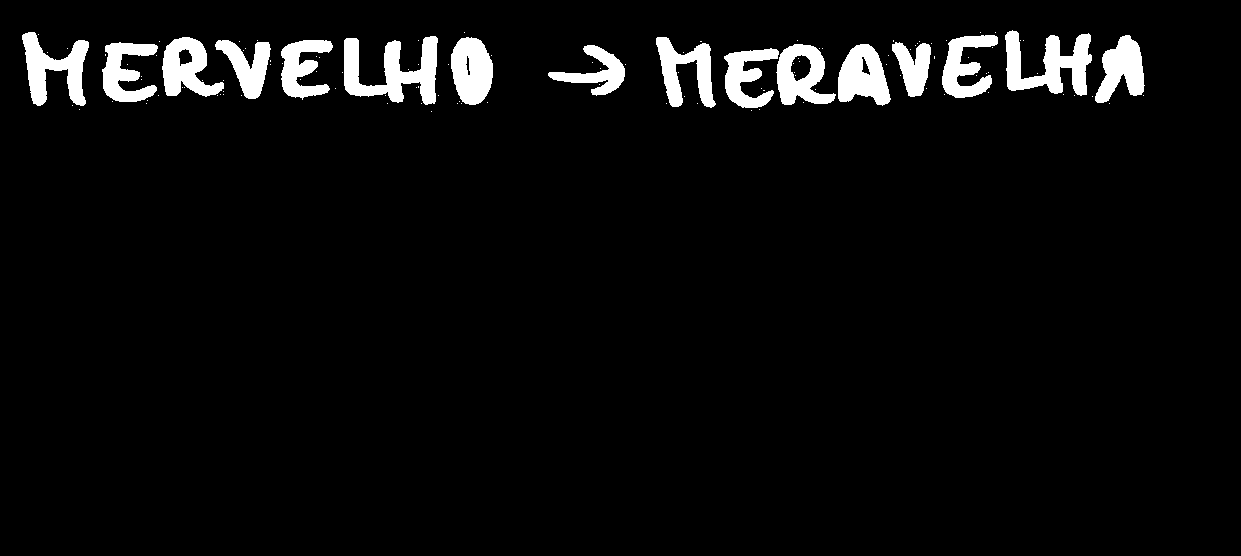 MERVELHO → MERAVELHA